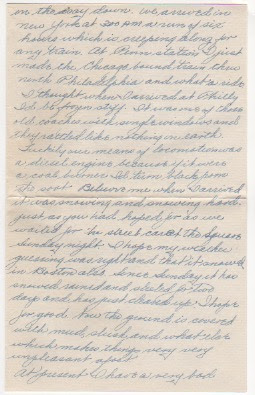 on the way down. We arrived in
New York at 2:00 P.M. a run of six
hours which is creeping along for
any train. At Penn station I just
made the Chicago bound train thru
north Philadelphia and what a ride
I thought when I arrived at Philly
I'd be frozen stiff. It was one of those
old coaches with single windows and
they rattled like nothing on earth
Luckily our means of locomotion was
a diesel engine because if it were
a coal burner I'd turn black from
the soot. Believe me when I arrived
it was snowing and snowing hard
just as you had hoped for as we
waited for the street car at the Square
Sunday night. I hope my weather
guessing was right and that it snowed
in Boston also. Since Sunday it has
snowed, rained and sleeted for two
days and has just cleared up I hope
for good. Now the ground is covered
with mud, slush, and what else
which makes things very very
unpleasant
At present I have a very bad